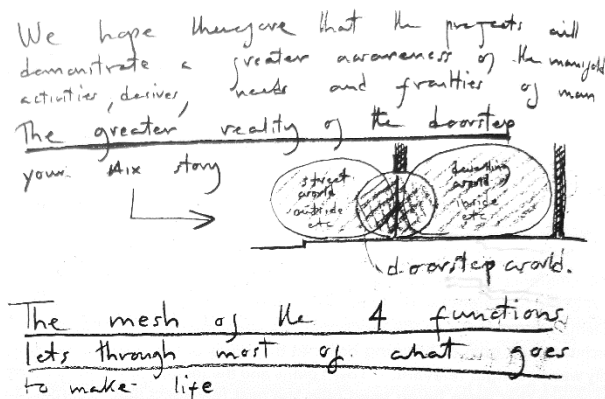 We hope therefore that the projects will
demonstrate a greater awareness of the manifold
activities, desires, needs and frailties of man
The greater reality of the doorstep
your Aix story
street
world
outside
etc
dwelling
world
inside
etc
doorstep world.
The mesh of the 4 functions
lets through most of what goes
to make life